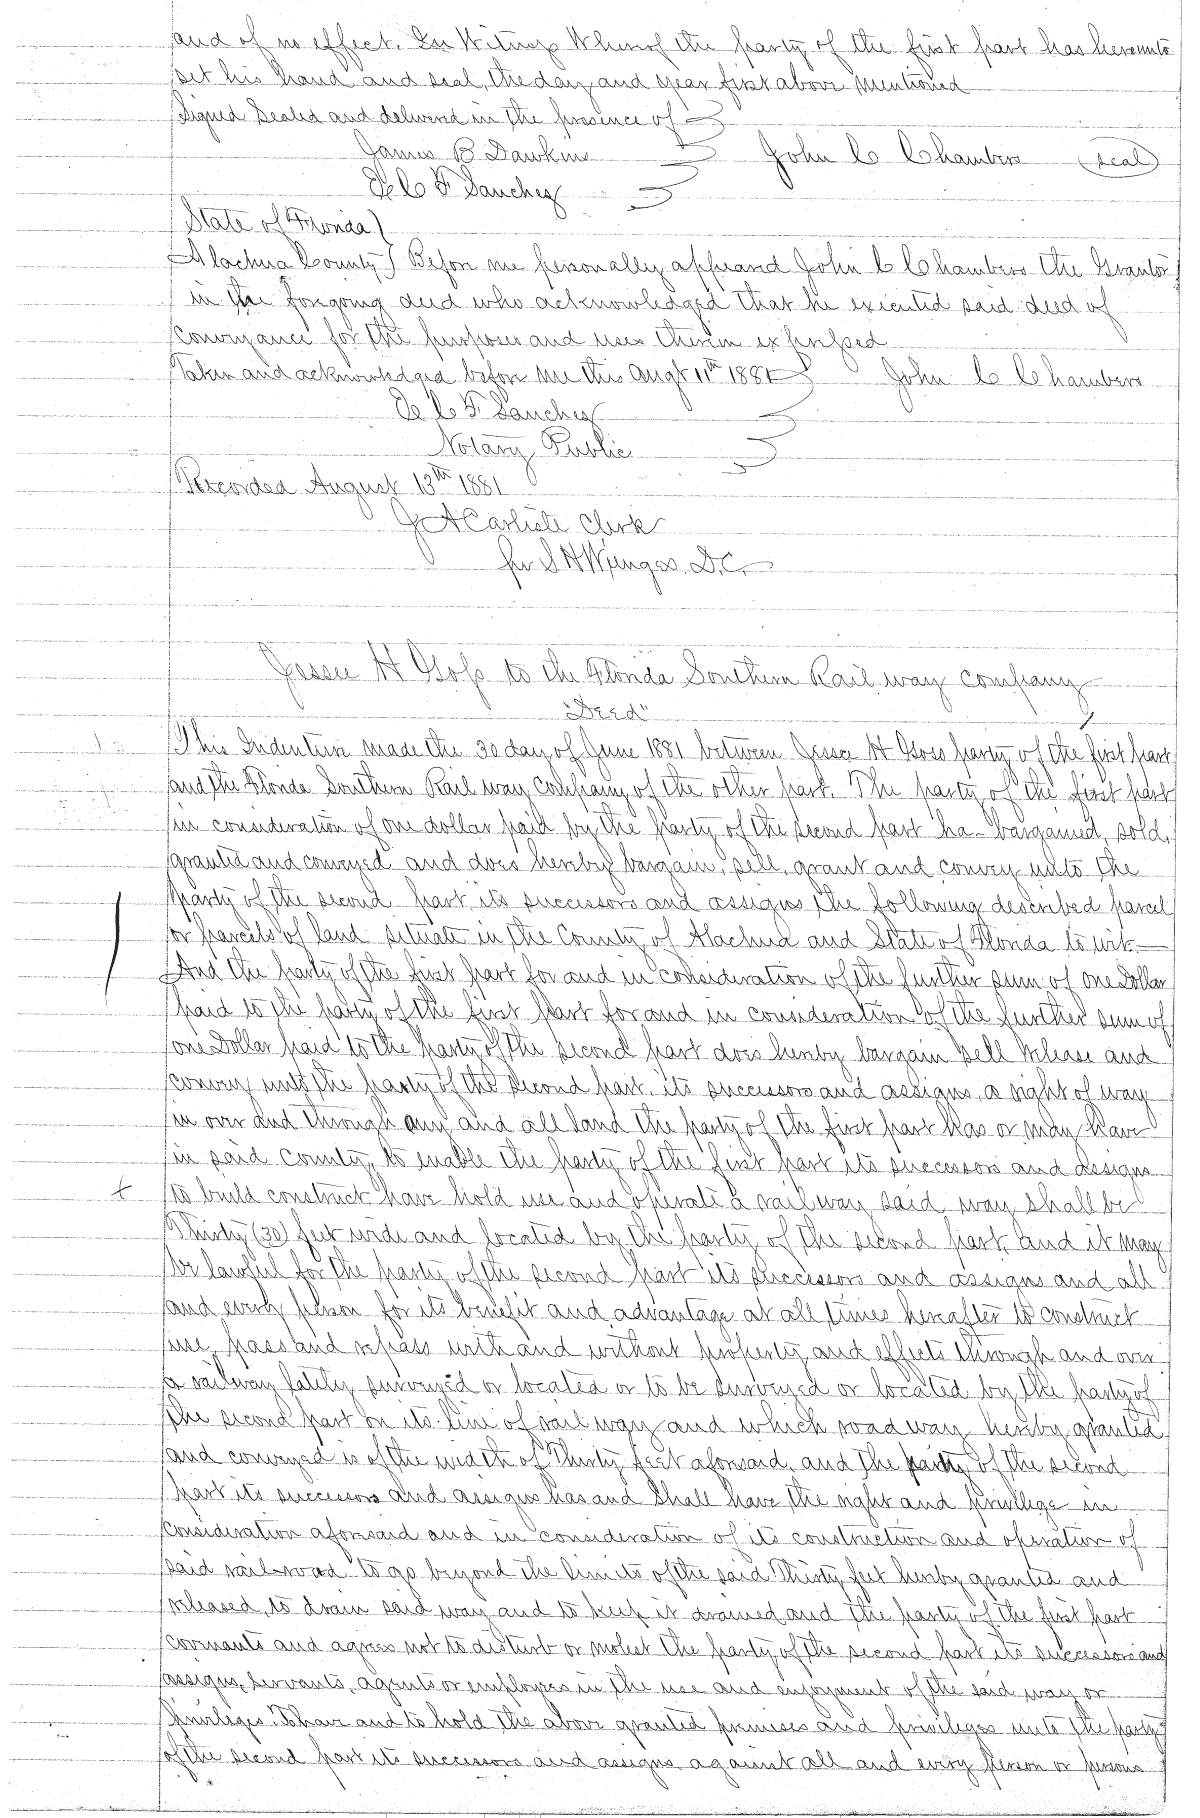 and of no effect. In Witness Whereof the party of the first part has hereunto
set his hand and seal, the day and year first above mentioned
Signed Sealed and delivered in the presence of
James B Dawkins John C Chambers (seal)
E C F Sanchez
State of Florida)
Alachua County) Before me personally appeared John C Chambers the Grantor
in the foregoing deed who acknowledged that he executed said deed of
conveyance for the purposes and uses therein expressed
Taken and acknowledged before me this Augt 11th 1881 John C Chambers
E C F Sanchez
Notary Public
Recorded August 13th 1881
J A Carlisle Clerk
per S H Wienges D.C.
Jessee H Goss to the Florida Southern Rail way company
"Deed"
This Indenture made the 30 day of June 1881 between Jessee H Goss party of the first part
and the Florida Southern Rail way company of the other part. The party of the first part
in consideration of one dollar paid by the party of the second part ha- bargained, sold,
granted and conveyed and does hereby bargain, sell, grant and convey unto the
party of the second part, its successors and assigns, the following described parcel
or parcels of land situate in the County of Alachua and State of Florida to wit.—
And the party of the first part for and in consideration of the further sum of one Dollar
paid to the party of the first part for and in consideration of the further sum of
one Dollar paid to the party of the second part does hereby bargain sell release and
convey unto the party of the second part, its successors and assigns, a right of way
in over and through any and all land the party of the first part has or may have
in said county, to enable the party of the first part its successors and assigns
+ to build construct have hold use and operate a railway said way shall be
Thirty (30) feet wide and located by the party of the second part, and it may
be lawful for the party of the second part its successors and assigns and all
and every person for its benefit and advantage at all times hereafter to construct
use, pass and repass with and without property and effects through and over
a railway lately surveyed or located or to be surveyed or located by the party of
the second part on its line of rail way and which road way hereby granted
and conveyed is of the width of Thirty feet aforesaid, and the party of the second
part its successors and assigns has and shall have the right and privilege in
consideration aforesaid and in consideration of its construction and operation of
said rail-road to go beyond the limits of the said Thirty feet hereby granted and
released, to drain said way and to keep it drained and the party of the first part
covenants and agrees not to disturb or molest the party of the second part its successors and
assigns, servants, agents or employees in the use and enjoyment of the said way or
privileges. To have and to hold the above granted premises and privileges unto the party
of the second part its successors and assigns against all and every person or persons